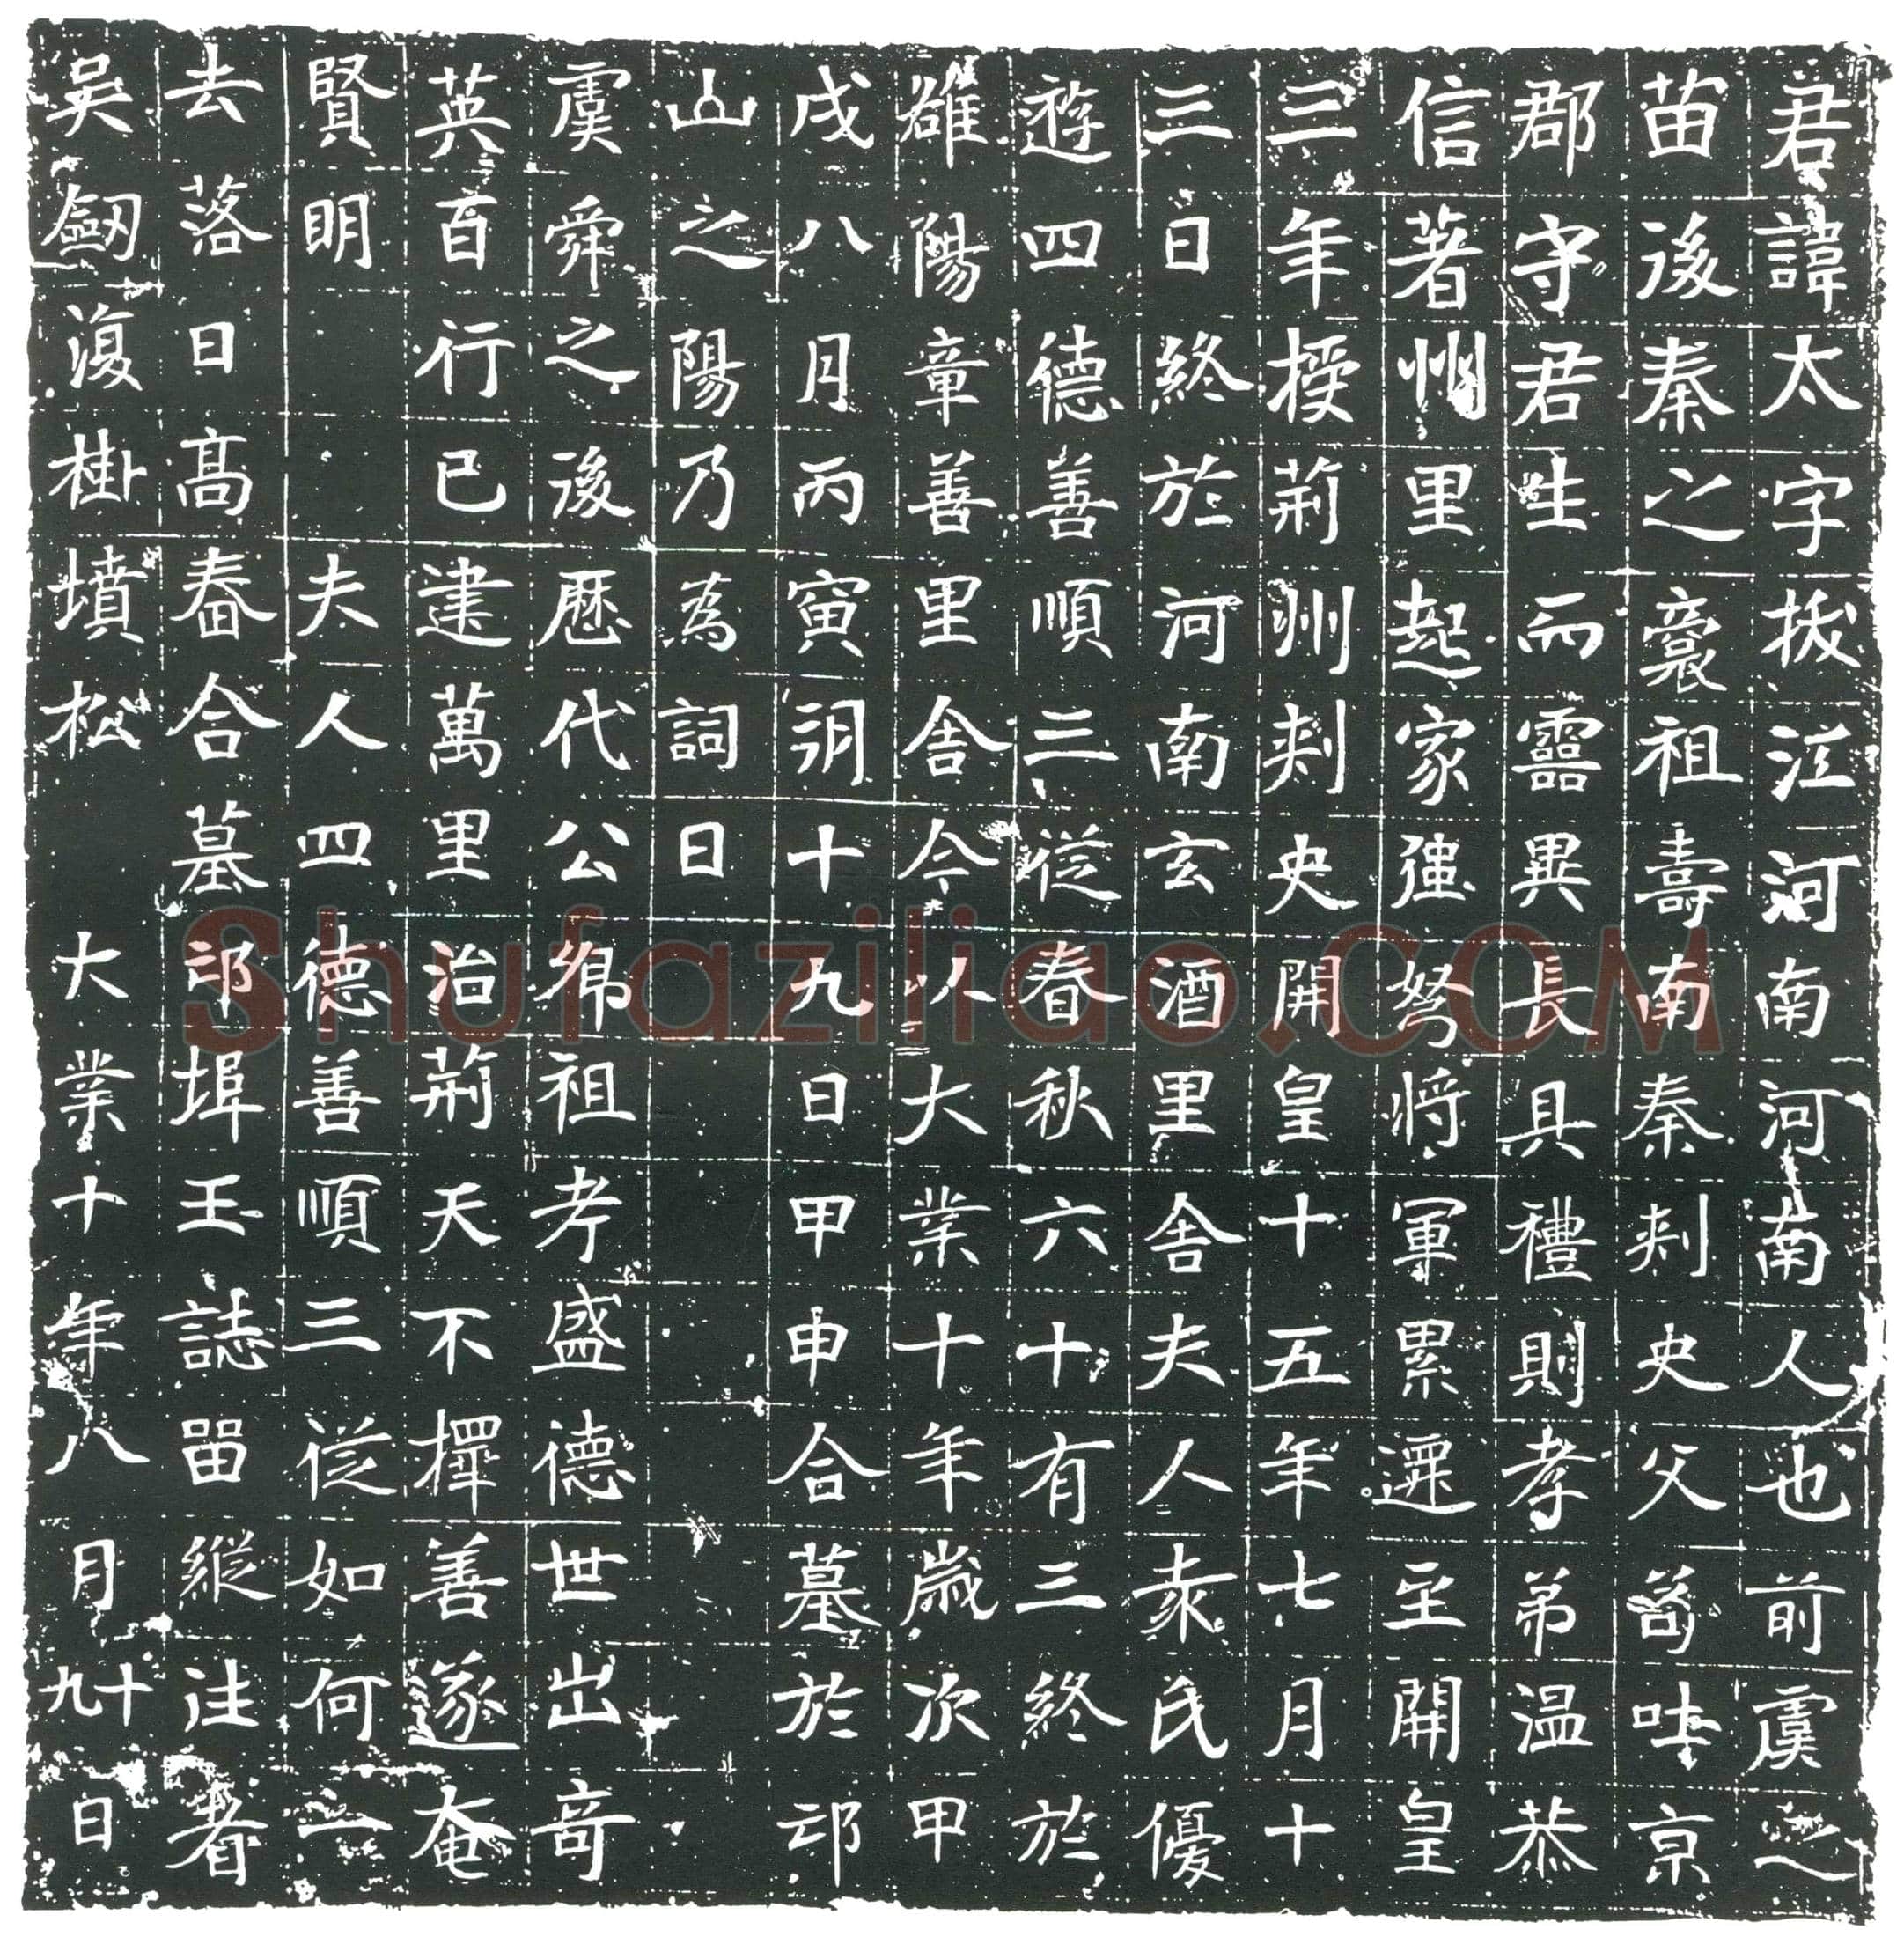 君諱太字拔江河南河南人也前虞之
苗後秦之裔祖壽南秦刾史父苟吐京
郡守君生而靈異長具禮則孝弟温恭
信著州里起家強弩將軍累遷至開皇
三年授荊州刾史開皇十五年七月十
三日終於河南玄酒里舍夫人氏優
遊四德善順三從春秋六十有三終於
雒陽章善里舍今以大業十年歲次甲
戌八月丙寅朔十九日甲申合墓於邙
山之陽乃為詞曰
虞舜之後歷代公卿祖考盛德世出奇
英百行已建萬里治荊天不擇善遂奄
賢明 夫人四德善順三從如何一
去落日高舂合墓邙埠玉誌留縱往者
吳劒復掛墳松 大業十年八月十九日
Shufaziliao.COM